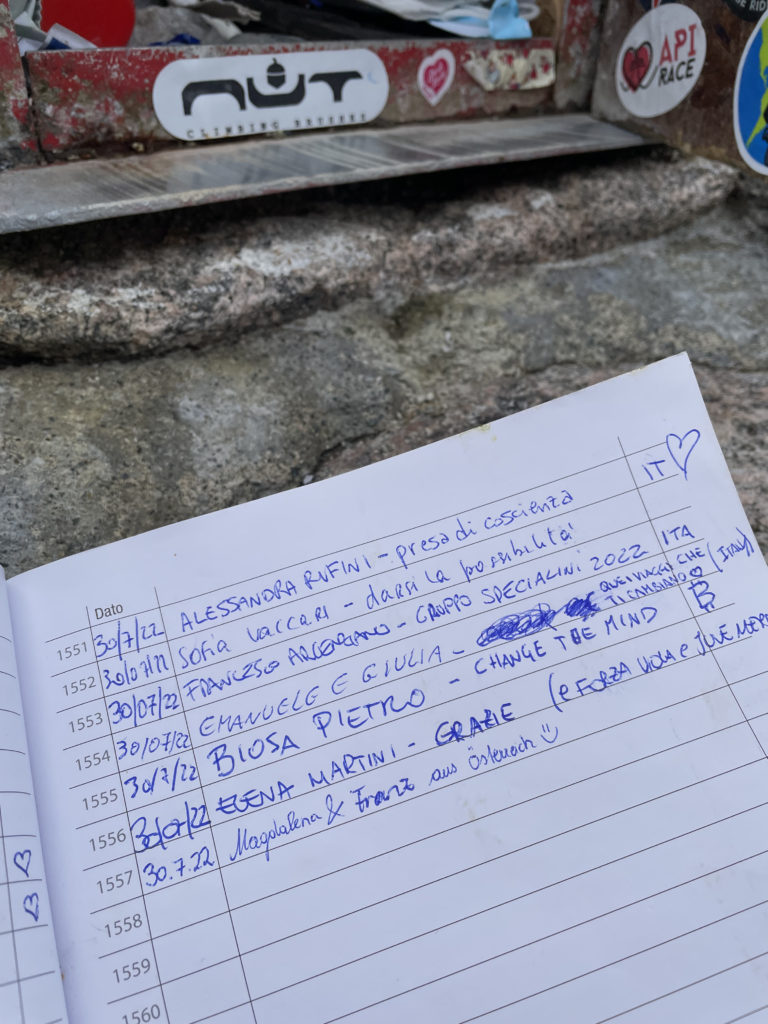 NUT
CLIMBING
API
RACE
Dato
1551 30/7/22 ALESSANDRA RUFINI - presa di coscienza IT
1552 30/07/22 Sofia Vaccari - darsi la possibilità
1553 30/07/22 FRANCESCO - GRUPPO SPECIALINI 2022 ITA
1554 30/07/22 EMANUELE E GIULIA - QUEI VIAGGI CHE TI CAMBIANO (ITALY)
1555 30/7/22 BIOSA PIETRO - CHANGE THE MIND B
1556 30/07/22 ELENA MARTINI - GRAZIE (e FORZA VIOLA e JUVE MERDA
1557 30.7.22 Magdalena & Franz aus Österreich
1558
1559
1560